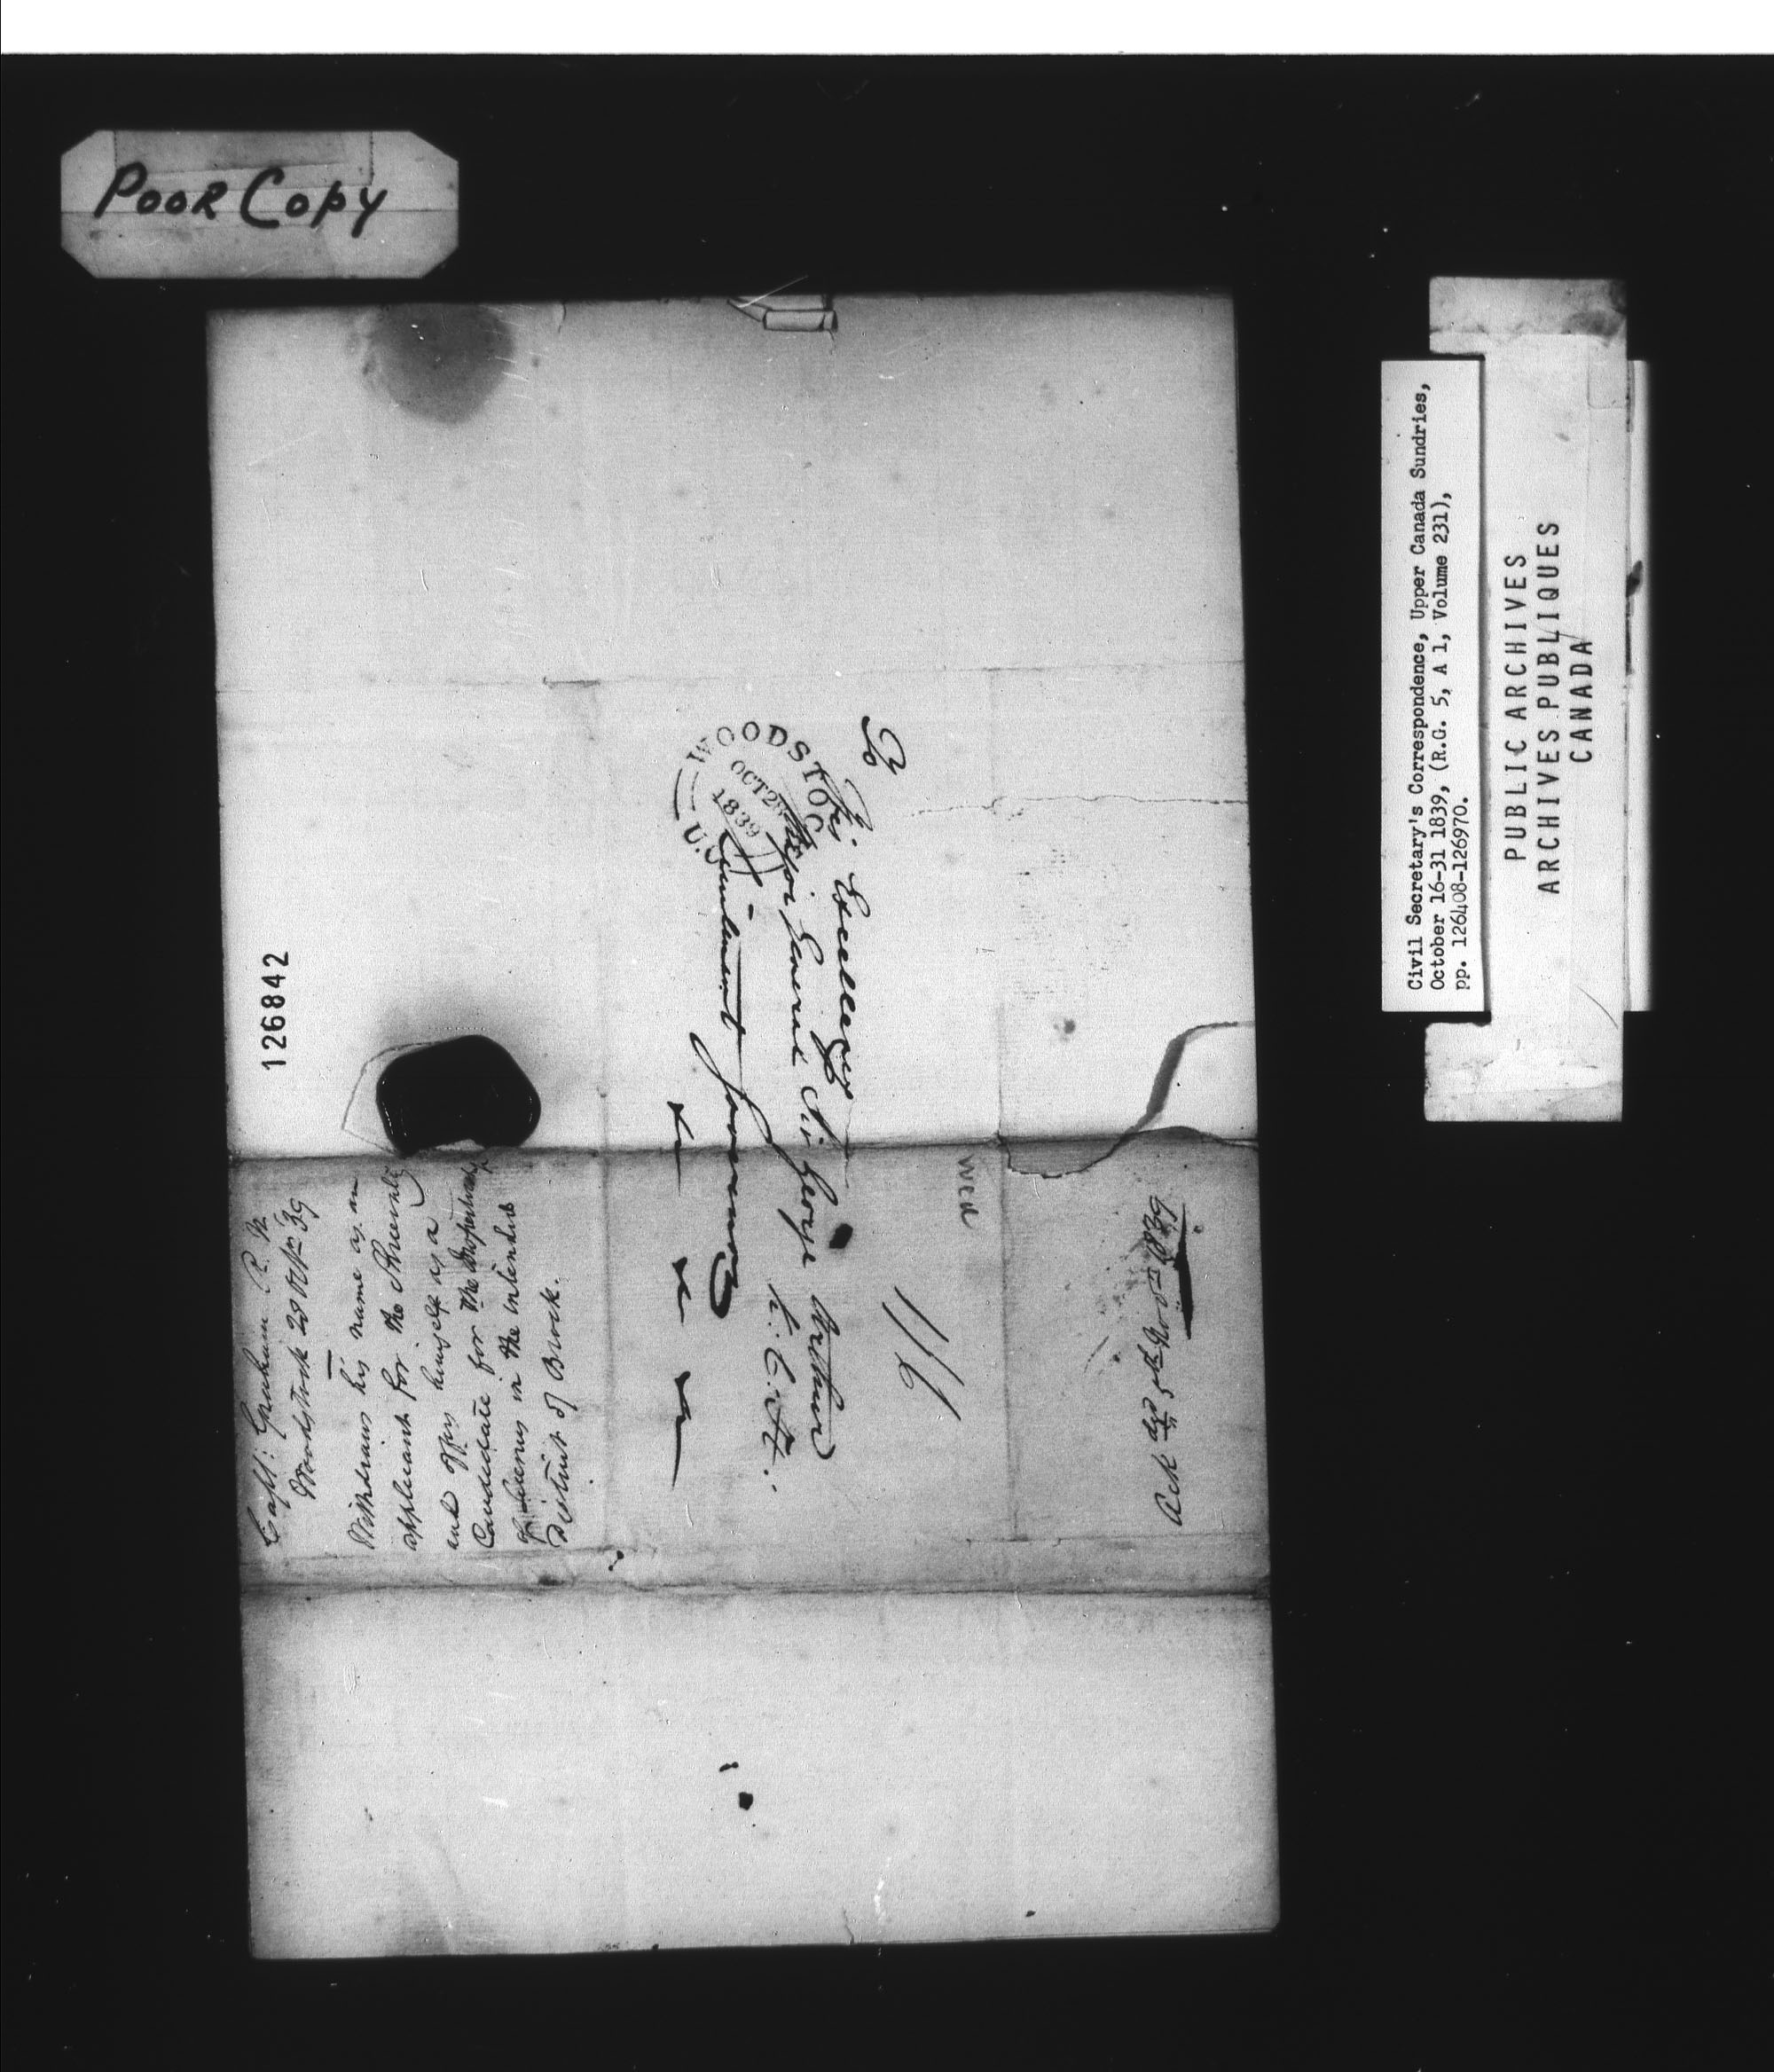 Poor Copy
Civil Secretary's Correspondence, Upper Canada Sundries,
October 16-31 1839, (R.G. 5, A 1, Volume 231),
pp. 126408-126970.
PUBLIC ARCHIVES
ARCHIVES PUBLIQUES
CANADA
126842
WOODSTOCK
OCT 28
1839
U.C.
To
His Excellency
Major General Sir George Arthur
K.C.H.
Lieutenant Governor
&c &c &c
1/6
Capt: Graham R. N.
Woodstock 28 Octr 39
Withdraws his name as an
applicant for the Shrievalty
and offers himself as a
Candidate for the
in the intended
District of Brock.
Ack dgd 5th Novr 1839